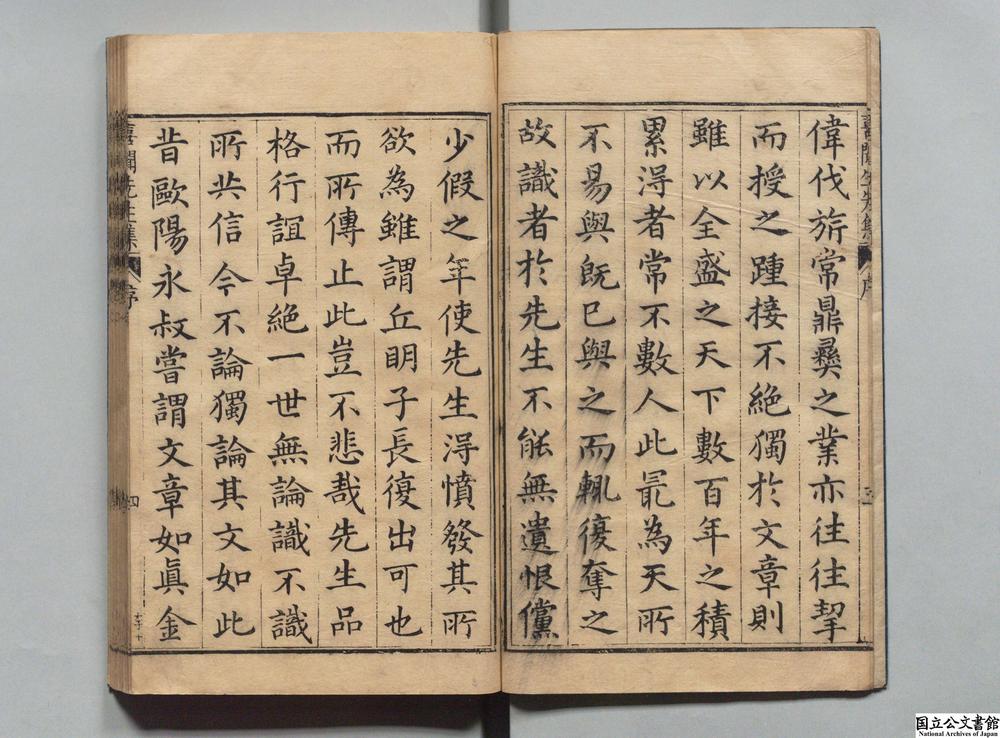 偉伐旂常鼎彝之業亦往往挈
而授之踵接不絕獨於文章則
雖以全盛之天下數百年之積
累淂者常不數人此冣為天所
不易與旣已與之而輒復奪之
故識者於先生不能無遺恨儻
少假之年使先生淂憤發其所
欲為雖謂丘眀子長復出可也
而所傳止此豈不悲哉先生品
格行誼卓絕一世無論識不識
所共信今不論獨論其文如此
昔歐陽永叔嘗謂文章如眞金
序
四
国立公文書館
National Archives of Japan